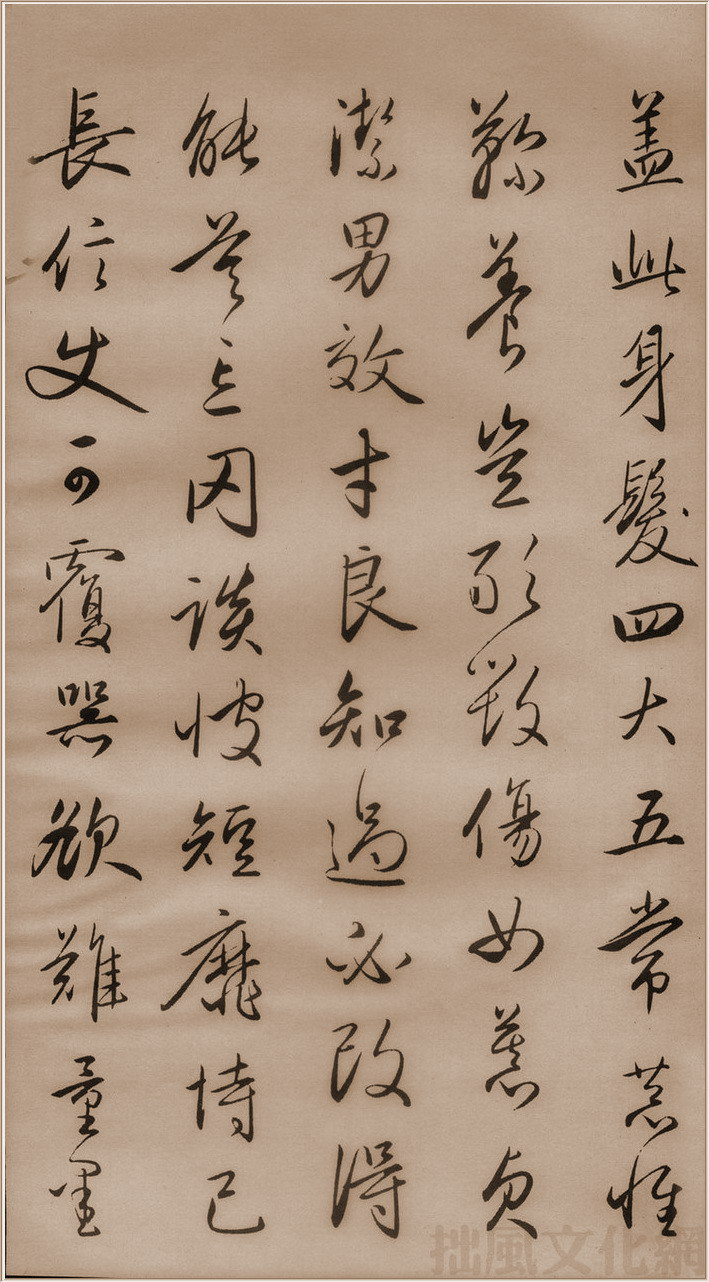 盖此身髮四大五常恭惟
鞠養豈敢毀傷女慕貞
潔男效才良知過必改得
能莫忘罔談彼短靡恃己
長信使可覆器欲難量墨
拙風文化網